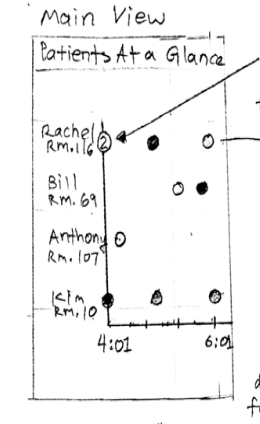 Main View
Patients At a Glance
Rachel
Rm. 116
2
Bill
Rm. 69
Anthony
Rm. 107
Kim
Rm. 10
4:01
6:01